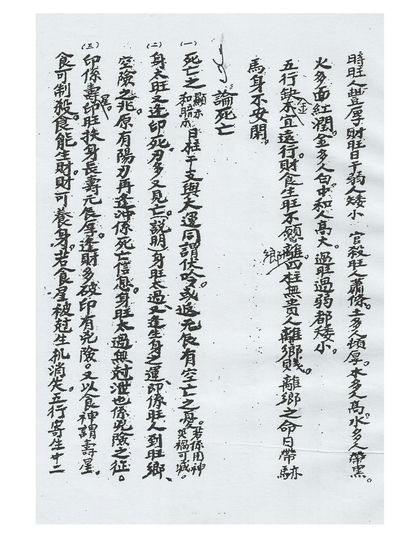 時旺人豐厚財旺日干弱人矮小 官殺旺人肅條。土多人頓厚。水多人高。水多人帶黑。
火多面紅潤。金多人白中和人高大。過旺過弱都矮小。
五行缺木金宜遠行。財食生旺不願離鄉四柱無貴人離鄉賤。離鄉之命日帶驛
馬身不安閑。
论死亡
(一)死亡之 日柱干支與大運同謂伏吟或返元辰有空亡之憂。若係用神
(二)身太旺又逢印死刃多又見亡。說明身旺太過又逢生身之運印係旺人到旺鄉、
空險之兆。原有陽刃再逢沖係死亡信息身旺太過無尅洩也係兇險之征。
(三)印係壽星印旺扶身長壽元辰厚逢財多破印有兇險。又以食神謂壽星。
食可制殺。食能生財。財可養身。若食星被尅生机消失。五行寄生十二